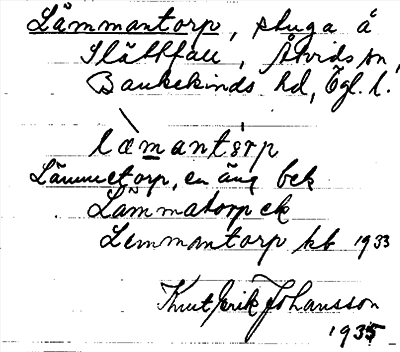 Lämmantorp, stuga å
Slättfall, Åtvids sn,
Bankekinds hd, Ögl. l.
læmantsrp
Lämmetorp, en äng bek
Lämmatorp ek
Lemmantorp kb 1933
Knut Erik Johansson
1935